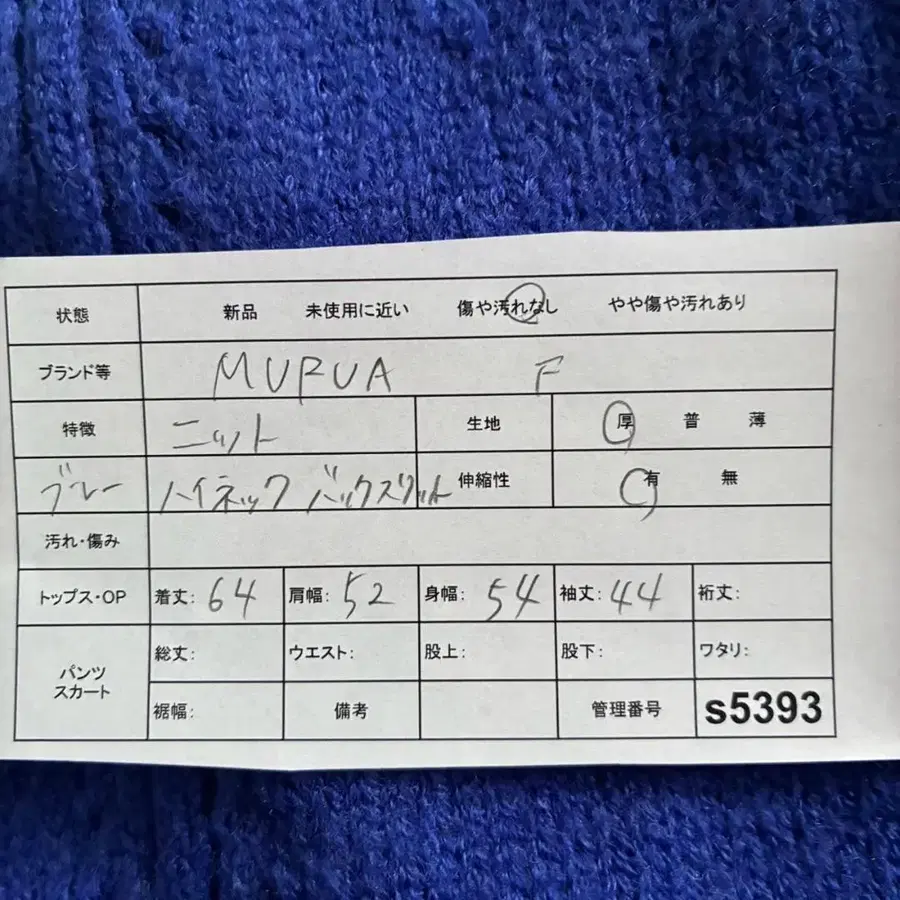 状態 新品 未使用に近い 傷や汚れなし やや傷や汚れあり
ブランド等 MURUA F
特徴 ニット 生地 厚 普 薄
ブルー ハイネック バックスリット 伸縮性 有 無
汚れ・傷み
トップス・OP 着丈: 64 肩幅: 52 身幅: 54 袖丈: 44 裄丈:
パンツ スカート 総丈: ウエスト: 股上: 股下: ワタリ:
裾幅: 備考 管理番号 s5393